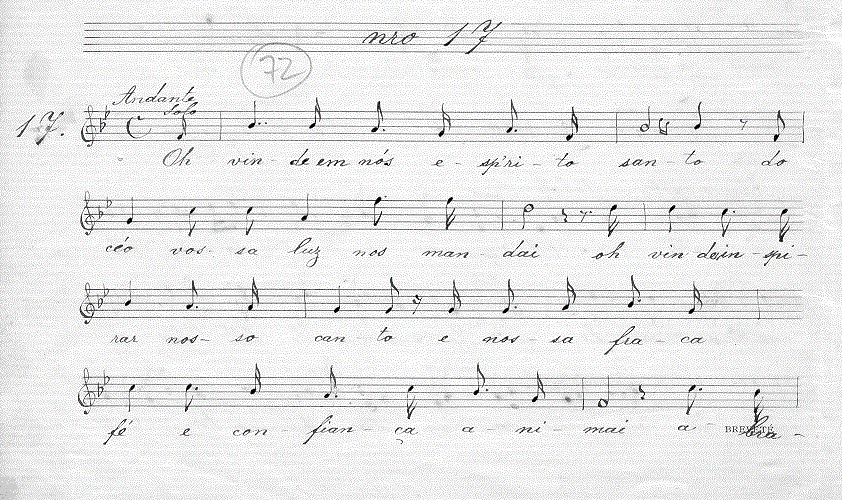 nro 17
72
Andante
Solo
17.
Oh vin-de em nós e-sp'ri-to san-to do
céo vos-sa luz nos man-dai oh vin-de in-spi-
rar nos-so can-to e nos-sa fra-ca
fé e con-fian-ça a-ni-mai a-bra-
BREVETÉ